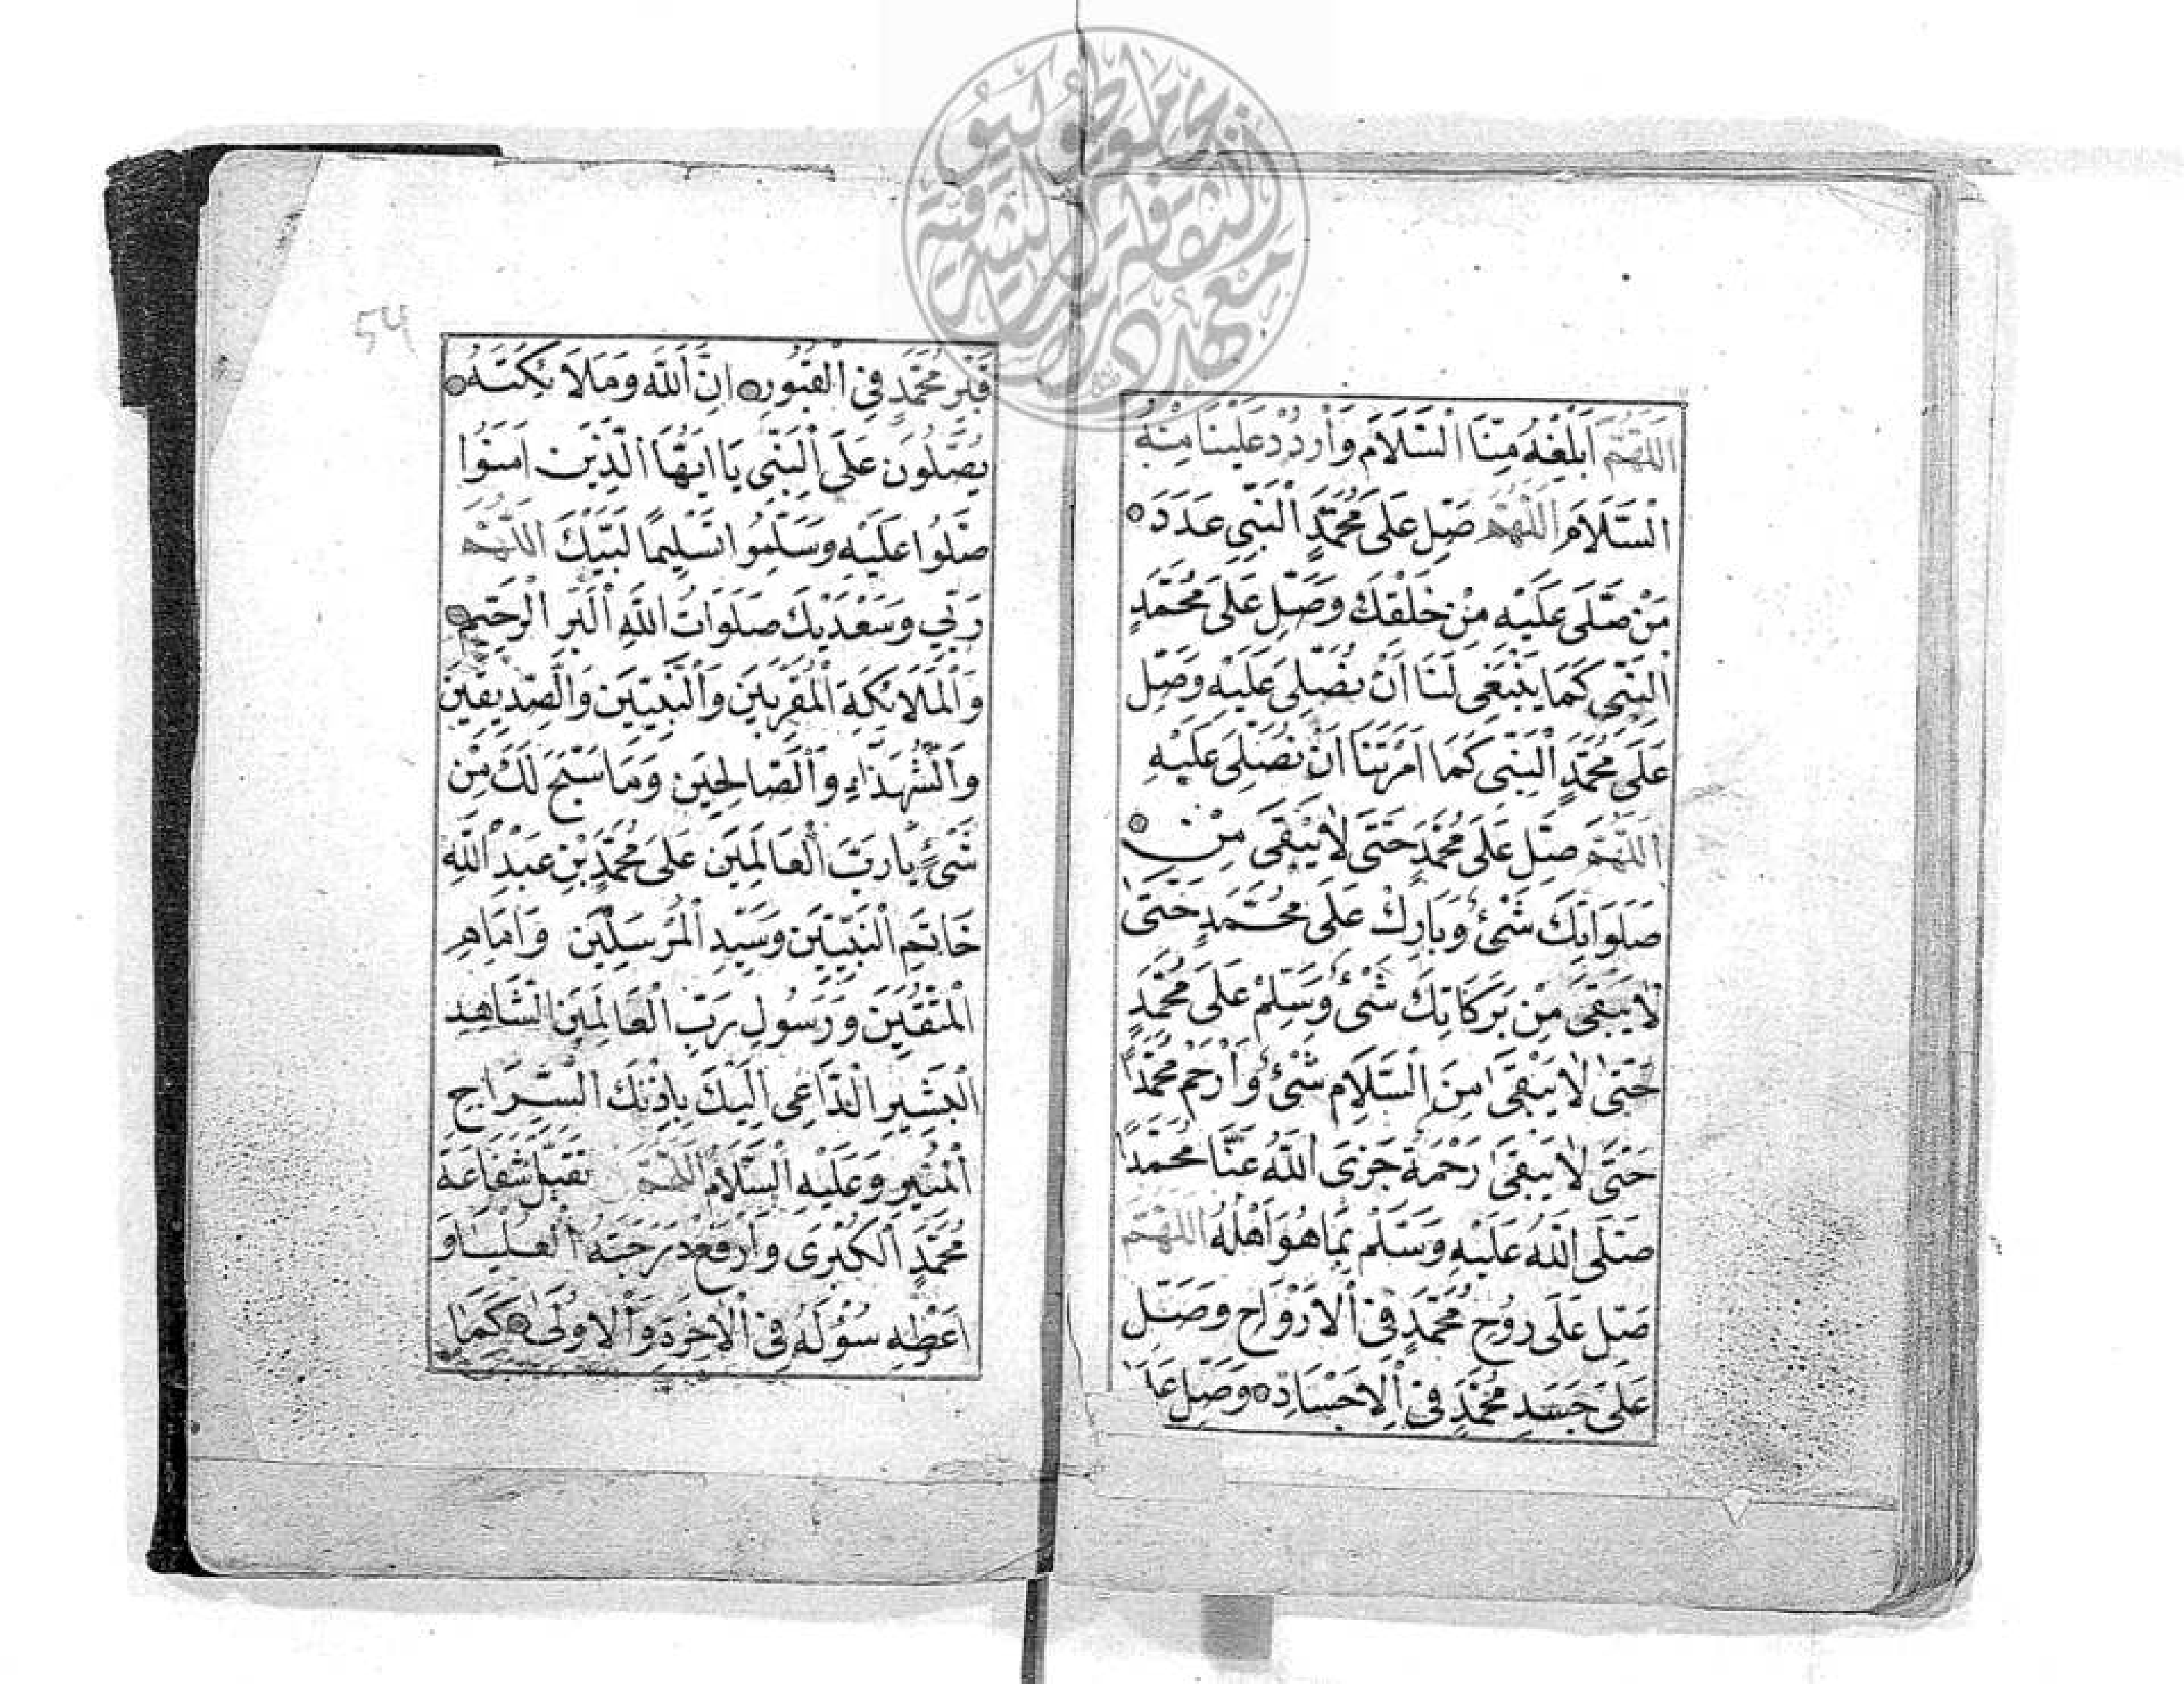 اَللّٰهُمَّ اَبْلِغْهُ مِنَّا السَّلَامَ وَارْدُدْ عَلَيْنَا مِنْهُ
السَّلَامَ اَللّٰهُمَّ صَلِّ عَلَى مُحَمَّدٍ النَّبِيِّ عَدَدَ
مَنْ صَلَّى عَلَيْهِ مِنْ خَلْقِكَ وَصَلِّ عَلَى مُحَمَّدٍ
النَّبِيِّ كَمَا يَنْبَغِي لَنَا اَنْ نُصَلِّيَ عَلَيْهِ وَصَلِّ
عَلَى مُحَمَّدٍ النَّبِيِّ كَمَا اَمَرْتَنَا اَنْ نُصَلِّيَ عَلَيْهِ
اَللّٰهُمَّ صَلِّ عَلَى مُحَمَّدٍ حَتَّى لَا يَبْقَى مِنْ
صَلَوَاتِكَ شَيْءٌ وَبَارِكْ عَلَى مُحَمَّدٍ حَتَّى
لَا يَبْقَى مِنْ بَرَكَاتِكَ شَيْءٌ وَسَلِّمْ عَلَى مُحَمَّدٍ
حَتَّى لَا يَبْقَى مِنَ السَّلَامِ شَيْءٌ وَارْحَمْ مُحَمَّدًا
حَتَّى لَا يَبْقَى رَحْمَةٌ جَزَى اللّٰهُ عَنَّا مُحَمَّدًا
صَلَّى اللّٰهُ عَلَيْهِ وَسَلَّمَ بِمَا هُوَ اَهْلُهُ اَللّٰهُمَّ
صَلِّ عَلَى رُوحِ مُحَمَّدٍ فِي الْاَرْوَاحِ وَصَلِّ
عَلَى جَسَدِ مُحَمَّدٍ فِي الْاَجْسَادِ وَصَلِّ عَلَى
54
قَبْرِ مُحَمَّدٍ فِي الْقُبُورِ اِنَّ اللّٰهَ وَمَلَائِكَتَهُ
يُصَلُّونَ عَلَى النَّبِيِّ يَا اَيُّهَا الَّذِينَ اٰمَنُوا
صَلُّوا عَلَيْهِ وَسَلِّمُوا تَسْلِيمًا لَبَّيْكَ اللّٰهُمَّ
رَبِّي وَسَعْدَيْكَ صَلَوَاتُ اللّٰهِ الْبَرِّ الرَّحِيمِ
وَالْمَلَائِكَةِ الْمُقَرَّبِينَ وَالنَّبِيِّينَ وَالصِّدِّيقِينَ
وَالشُّهَدَاءِ وَالصَّالِحِينَ وَمَا سَبَّحَ لَكَ مِنْ
شَيْءٍ يَا رَبَّ الْعَالَمِينَ عَلَى مُحَمَّدِ بْنِ عَبْدِ اللّٰهِ
خَاتَمِ النَّبِيِّينَ وَسَيِّدِ الْمُرْسَلِينَ وَاِمَامِ
الْمُتَّقِينَ وَرَسُولِ رَبِّ الْعَالَمِينَ الشَّاهِدِ
الْبَشِيرِ الدَّاعِي اِلَيْكَ بِاِذْنِكَ السِّرَاجِ
الْمُنِيرِ وَعَلَيْهِ السَّلَامُ اَللّٰهُمَّ تَقَبَّلْ شَفَاعَةَ
مُحَمَّدٍ الْكُبْرَى وَارْفَعْ دَرَجَتَهُ الْعُلْيَا وَ
اَعْطِهِ سُؤْلَهُ فِي الْاٰخِرَةِ وَالْاُولَى كَمَا
معهد بيروني للدراسات الشرقية